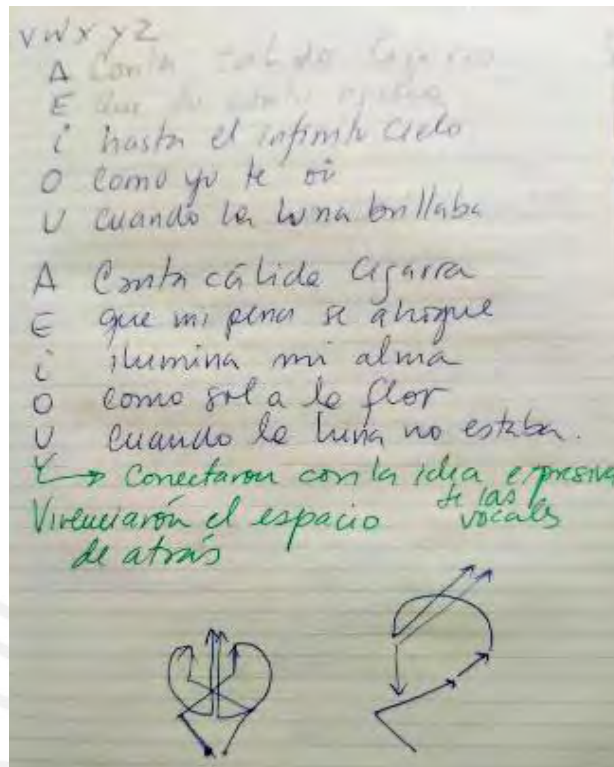 v W x y z
A Canta
E Que
i hasta el infinito Cielo
O Como yo te oí
U Cuando la luna brillaba
A Canta cálida Cigarra
E que mi pena se ahogue
i ilumina mi alma
O como sol a la flor
U Cuando la luna no estaba.
Y → Conectaron con la idea expresiva
de las vocales
Vivenciarón el espacio
de atrás